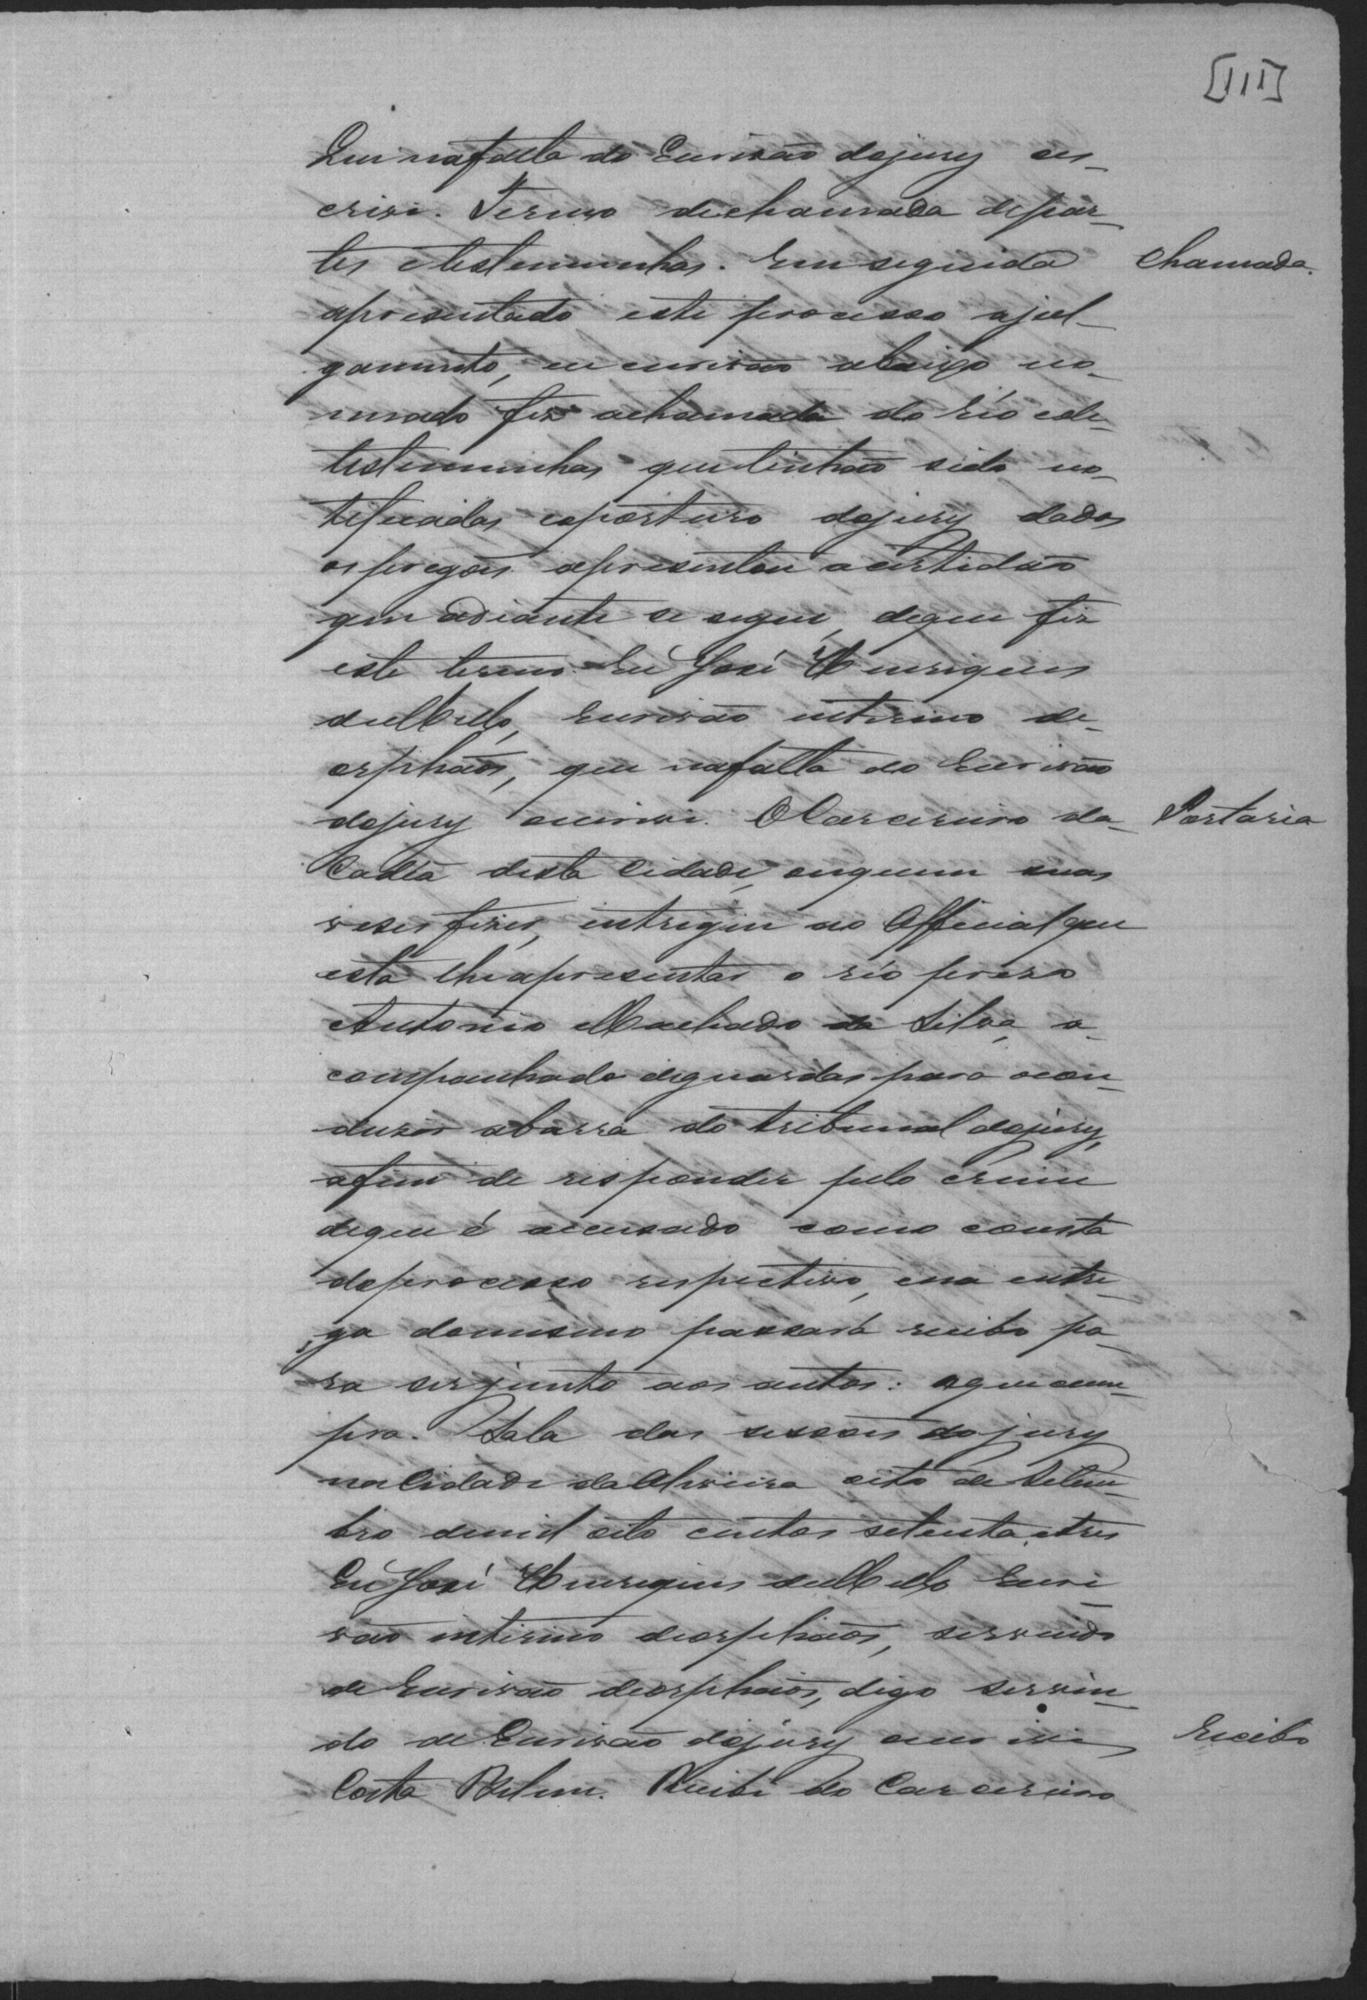 [111]
Que na falta do Escrivão do jury es-
crivi. Termo de chamada de par-
tes e testemunhas. Em seguida
chamada.
apresentado este processo a jul-
gamento, eu escrivão abaixo no-
meado fiz a chamada do réo e de
testemunhas que tinhão sido no-
tificadas e o porteiro do jury dados
os pregões apresentou a certidão
que adiante se segue, de que fiz
este termo. Eu José Henriques
de Mello, Escrivão interino de
orphãos, que na falta do Escrivão
do jury escrivi. O Carcereiro da
Portaria
Cadêa desta Cidade, ou quem suas
veses fizer, entregue ao Official que
esta lhe apresentar o réo preso
Antonio Machado da Silva, a-
companhado de guardas para o con-
duzir a barra do tribunal do jury,
afim de responder pelo crime
de que é accusado como consta
do processo respectivo, e na entre-
ga do mesmo passará recibo pa-
ra ser junto aos autos: o que cum-
pra. Sala das sessões do jury
na Cidade da oito de Setem-
bro de mil oito centos setenta e tres
Eu José Henriques de Mello Escri-
vão interino de orphãos, servindo
de Escrivão de orphãos, digo servin-
do de Escrivão do jury escrivi
Recibo
Costa Belem. Recibi do Carcereiro